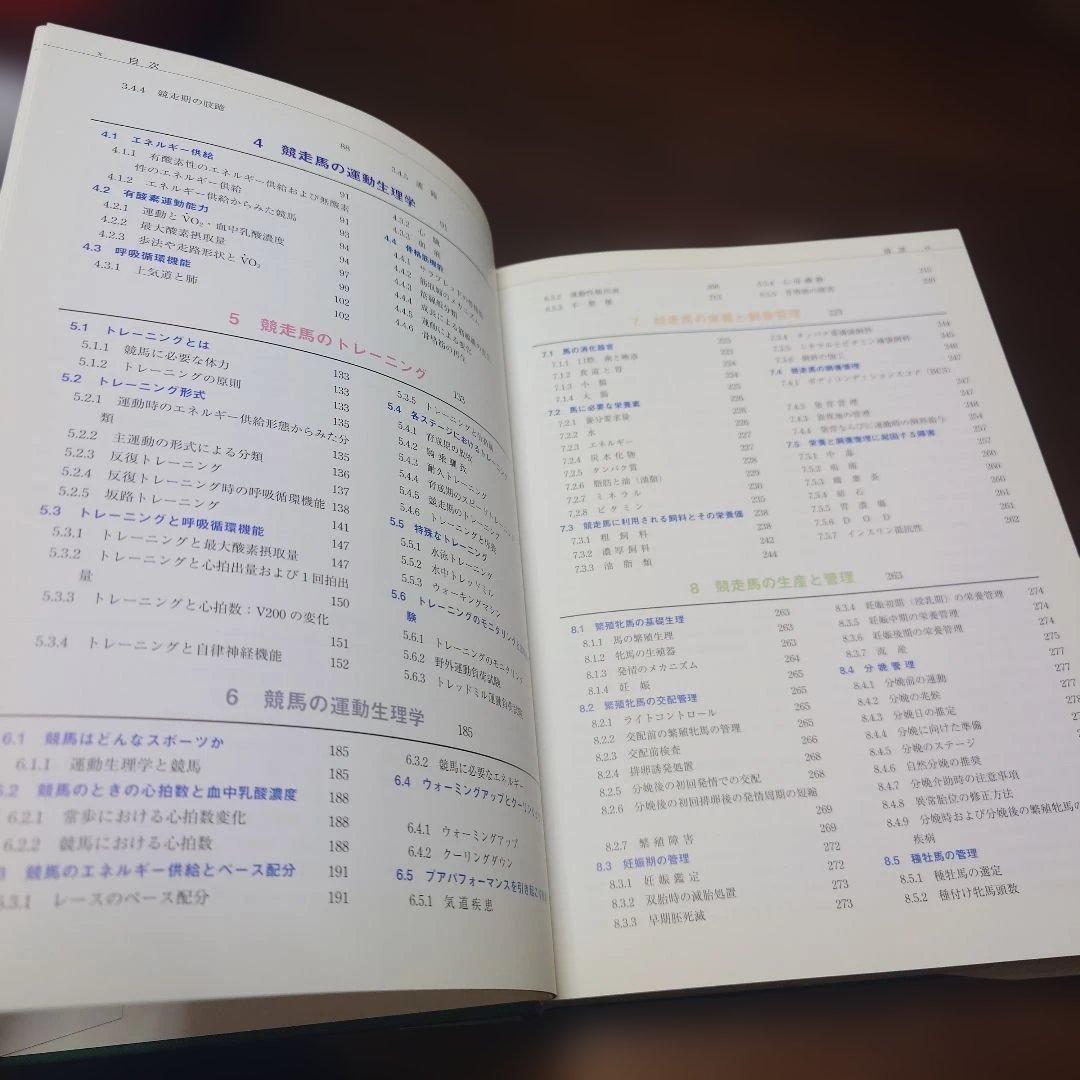 x 目次
3.4.4 競走期の肢蹄 88
3.4.5 裏
4 競走馬の運動生理学 91
4.1 エネルギー供給
4.1.1 有酸素性のエネルギー供給および無酸素
性のエネルギー供給 91
4.1.2 エネルギー供給からみた競馬 91
4.2 有酸素運動能力 93
4.2.1 運動とV̇O₂・血中乳酸濃度 94
4.2.2 最大酸素摂取量 94
4.2.3 歩法や走路形状とV̇O₂ 97
4.3 呼吸循環機能 99
4.3.1 上気道と肺 102
102
4.3.2 心臓
4.3.3 血液
4.4 骨格筋機能
4.4.1 サラブレッドの骨格筋
4.4.2 筋収縮のメカニズム
4.4.3 筋線維分類
4.4.4 成長による
4.4.5 運動による変化
4.4.6 骨格筋の再生
5 競走馬のトレーニング 133
5.1 トレーニングとは 133
5.1.1 競馬に必要な体力 133
5.1.2 トレーニングの原則 133
5.2 トレーニング形式 135
5.2.1 運動時のエネルギー供給形態からみた分
類 135
5.2.2 主運動の形式による分類 136
5.2.3 反復トレーニング 137
5.2.4 反復トレーニング時の呼吸循環機能 138
5.2.5 坂路トレーニング 141
5.3 トレーニングと呼吸循環機能 147
5.3.1 トレーニングと最大酸素摂取量 147
5.3.2 トレーニングと心拍出量および1回拍出
量 150
5.3.3 トレーニングと心拍数：V200の変化
151
5.3.4 トレーニングと自律神経機能 152
5.3.5 トレーニングと
5.4 各ステージにおけるトレーニング
5.4.1 育成期の
5.4.2 騎乗馴致
5.4.3 耐久トレーニング
5.4.4 育成期のスピードトレーニング
5.4.5 競走期のトレーニング
5.4.6 トレーニングと休養
5.5 特殊なトレーニング
5.5.1 水泳トレーニング
5.5.2 水中トレッドミル
5.5.3 ウォーキングマシン
5.6 トレーニングのモニタリングと
験
5.6.1 トレーニングのモニタリング
5.6.2 野外運動負荷試験
5.6.3 トレッドミル運動負荷試験
6 競馬の運動生理学 185
6.1 競馬はどんなスポーツか 185
6.1.1 運動生理学と競馬 185
6.2 競馬のときの心拍数と血中乳酸濃度 188
6.2.1 常歩における心拍数変化 188
6.2.2 競馬における心拍数 188
3 競馬のエネルギー供給とペース配分 191
6.3.1 レースのペース配分 191
6.3.2 競馬に必要なエネルギー
6.4 ウォーミングアップとクーリングダウン
6.4.1 ウォーミングアップ
6.4.2 クーリングダウン
6.5 プアパフォーマンスを引き起こす
6.5.1 気道疾患
目次 xi
6.5.2 運動性肺出血
6.5.3 不整脈 212
6.5.4 心母 210
6.5.5 220
7 競走馬の栄養と飼養管理 223
7.1 馬の消化器官 223
7.1.1 口腔、歯と唾液 223
7.1.2 食道と胃 224
7.1.3 小腸 224
7.1.4 大腸 225
7.2 馬に必要な栄養素 226
7.2.1 養分要求量 226
7.2.2 水 226
7.2.3 エネルギー 227
7.2.4 炭水化物 228
7.2.5 タンパク質 229
7.2.6 脂肪と油（油脂） 230
7.2.7 ミネラル 230
7.2.8 ビタミン 235
7.3 競走馬に利用される飼料とその栄養価 238
7.3.1 粗飼料 238
7.3.2 濃厚飼料 242
7.3.3 油脂類 244
7.3.4 タンパク質補助飼料 244
7.3.5 ミネラルとビタミン補助飼料 245
7.3.6 飼料の加工 247
7.4 競走馬の飼養管理 247
7.4.1 ボディコンディションスコア（BCS）
247
7.4.2 発育管理 247
7.4.3 放牧地の管理 248
7.4.4 発育ならびに運動時の飼料給与 254
7.5 栄養と飼養管理に起因する障害 257
7.5.1 中毒 257
7.5.2 疝痛 260
7.5.3 蹄葉炎 260
7.5.4 結石 260
7.5.5 胃潰瘍 261
7.5.6 DOD 261
7.5.7 インスリン抵抗性 262
8 競走馬の生産と管理 263
8.1 繁殖牝馬の基礎生理 263
8.1.1 馬の繁殖生理 263
8.1.2 牝馬の生殖器 263
8.1.3 発情のメカニズム 264
8.1.4 妊娠 265
8.2 繁殖牝馬の交配管理 265
8.2.1 ライトコントロール 265
8.2.2 交配前の繁殖牝馬の管理 265
8.2.3 交配前検査 266
8.2.4 排卵誘発処置 268
8.2.5 分娩後の初回発情での交配 268
8.2.6 分娩後の初回排卵後の発情周期の短縮
269
8.2.7 繁殖障害 269
8.3 妊娠期の管理 272
8.3.1 妊娠鑑定 272
8.3.2 双胎時の減胎処置 273
8.3.3 早期胚死滅 273
8.3.4 妊娠初期（授乳期）の栄養管理 274
8.3.5 妊娠中期の栄養管理 274
8.3.6 妊娠後期の栄養管理 274
8.3.7 流産 275
8.4 分娩管理 277
8.4.1 分娩前の運動 277
8.4.2 分娩の兆候 277
8.4.3 分娩日の推定 278
8.4.4 分娩に向けた準備
8.4.5 分娩のステージ
8.4.6 自然分娩の推奨
8.4.7 分娩介助時の注意事項
8.4.8 異常胎位の修正方法
8.4.9 分娩時および分娩後の繁殖牝馬の
疾病
8.5 種牡馬の管理
8.5.1 種牡馬の選定
8.5.2 種付け牝馬頭数